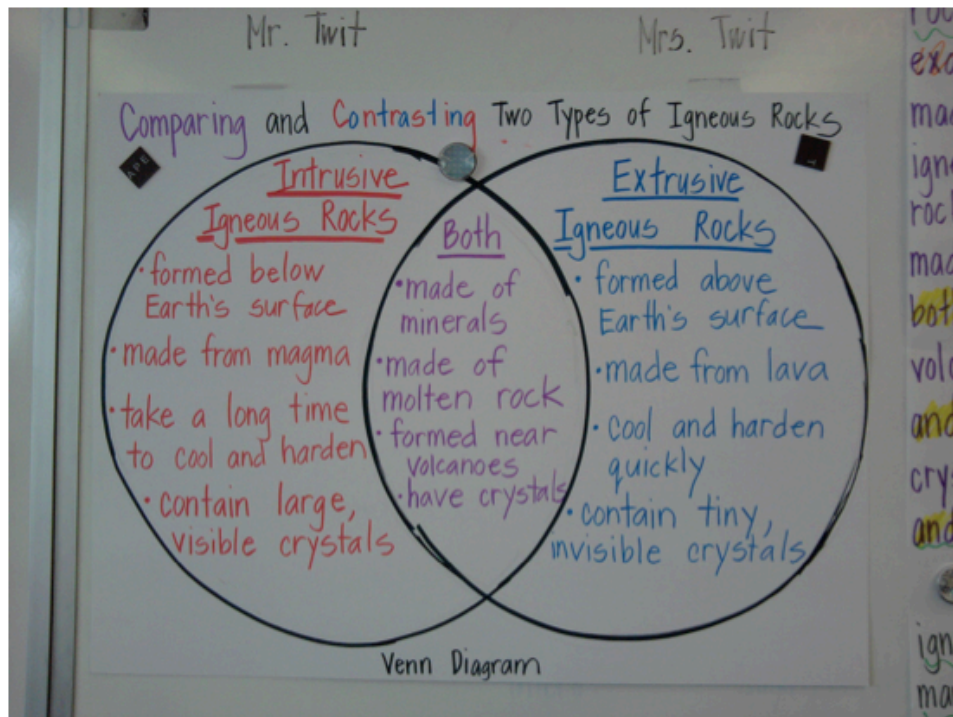 Mr. Twit
Mrs. Twit
Comparing and Contrasting Two Types of Igneous Rocks
APE
Intrusive
Igneous Rocks
• formed below
Earth's surface
• made from magma
• take a long time
to cool and harden
• contain large,
visible crystals
Both
• made of
minerals
• made of
molten rock
• formed near
volcanoes
• have crystals
Extrusive
Igneous Rocks
• formed above
Earth's surface
• made from lava
• cool and harden
quickly
• contain tiny,
invisible crystals
Venn Diagram
mad
igne
rock
mad
both
volc
and
crys
and
ign
ma